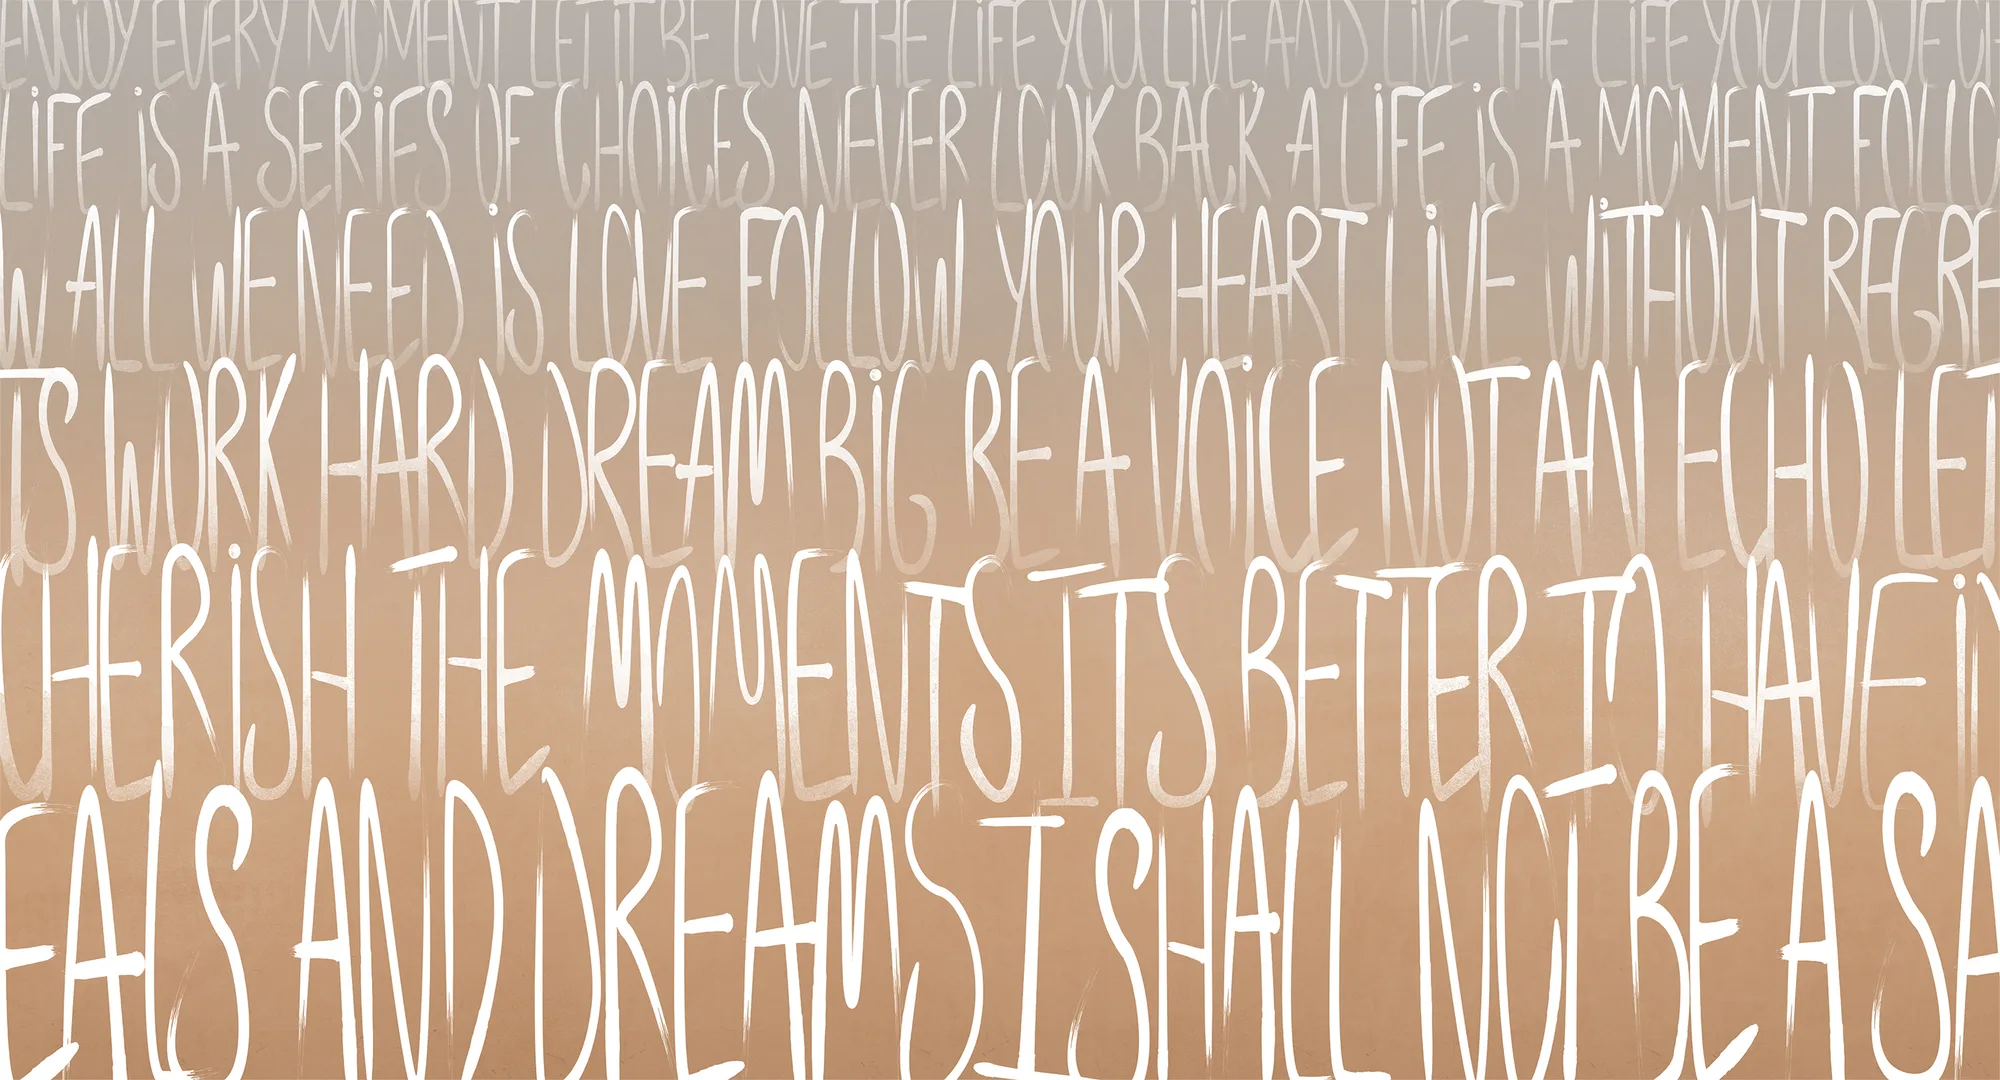 ENJOY EVERY MOMENT LET IT BE LOVE THE LIFE YOU LIVE AND LIVE THE LIFE YOU LOVE
LIFE IS A SERIES OF CHOICES NEVER LOOK BACK A LIFE IS A MOMENT FOLLO
W ALL WE NEED IS LOVE FOLLOW YOUR HEART LIVE WITHOUT REGRE
TS WORK HARD DREAM BIG BE A VOICE NOT AN ECHO LET
CHERISH THE MOMENTS ITS BETTER TO HAVE
EALS AND DREAMS I SHALL NOT BE A SA